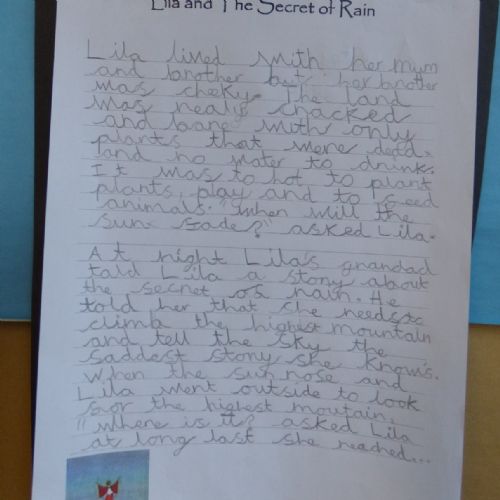 Lila and The Secret of Rain
Lila lived with her mum
and brother but her brother
was cheeky. The land
was realy cracked
and bare with only
plants that were dead.
and no water to drink.
It was to hot to plant
plants, play and to feed
animals. "When will the
sun fade?" asked Lila.
At night Lila's grandad
told Lila a story about
the secret of rain. He
told her that she needs to
climb the highest mountain
and tell the sky the
saddest story she knows.
When the sun rose and
Lila went outside to look
for the highest moutain.
"Where is it? asked Lila
at long last she reached...